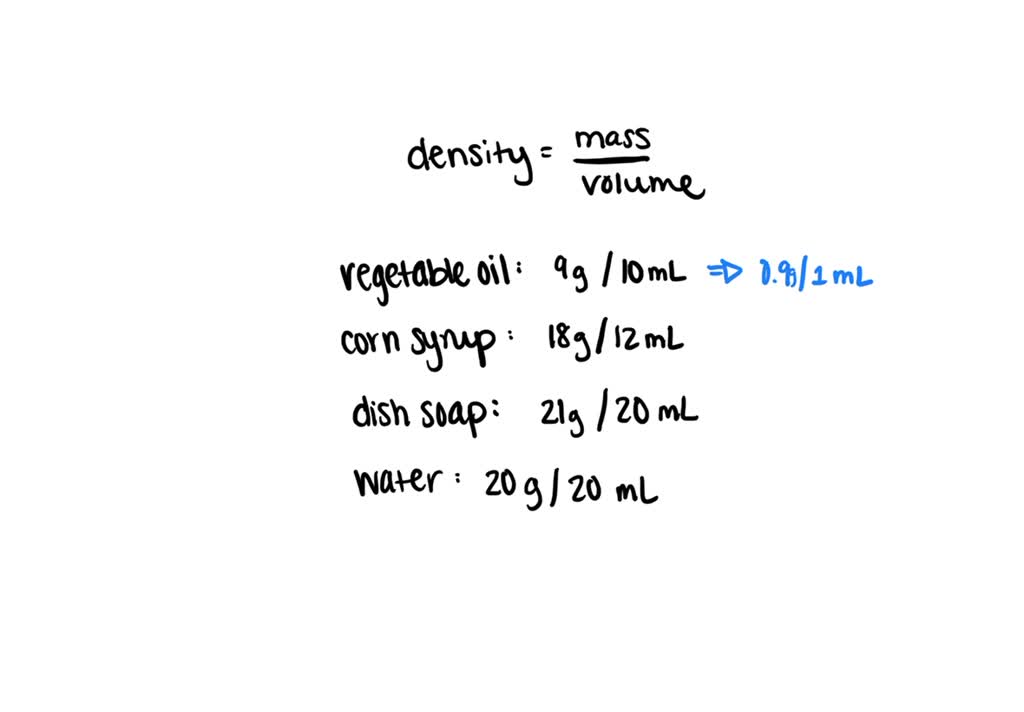 density = mass / volume
vegetable oil: 9g / 10 mL ⇒ 0.9g / 1 mL
corn syrup: 18g / 12 mL
dish soap: 21g / 20 mL
water: 20 g / 20 mL